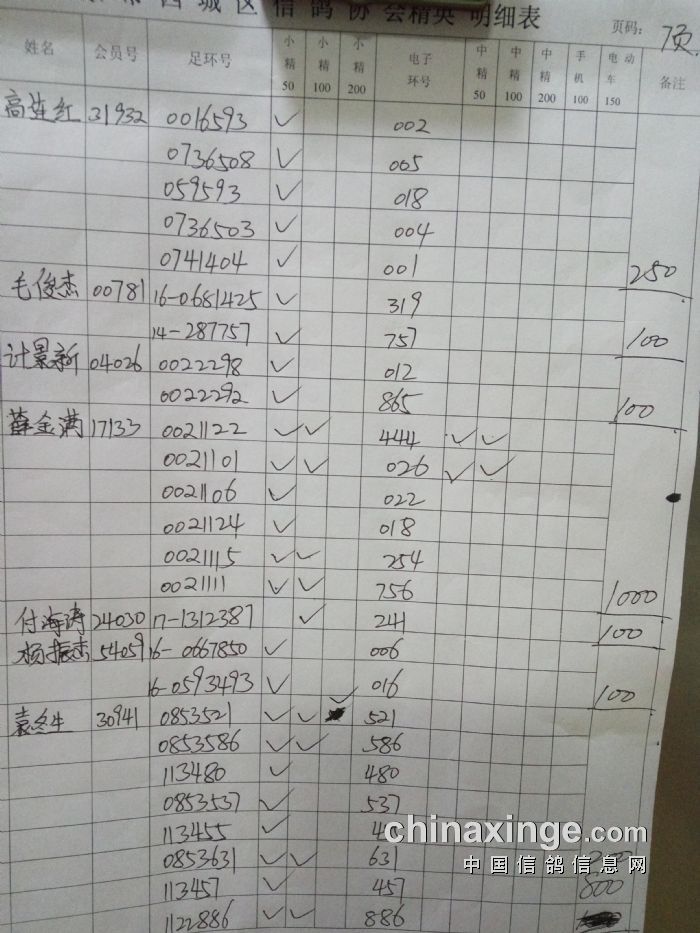 市西城区信鸽协会精英 明细表
页码: 7页.
姓名 会员号 足环号 小精50 小精100 小精200 电子环号 中精50 中精100 中精200 手机100 电动车150 备注
高连红 31932 0016593 ✓ 002
0736508 ✓ 005
059593 ✓ 018
0736503 ✓ 004
0741404 ✓ 001 250
毛俊杰 00781 16-0681425 ✓ 319
14-287757 ✓ 757 100
计景新 04026 0022298 ✓ 012
0022292 ✓ 865 100
薛金满 17133 0021122 ✓ ✓ 444 ✓ ✓
0021101 ✓ ✓ 026 ✓ ✓
0021106 ✓ 022
0021124 ✓ 018
0021115 ✓ ✓ 254
0021111 ✓ ✓ 756 1000
付海涛 24030 17-1312387 ✓ 241 100
杨振杰 54059 16-0667850 ✓ 006
16-0593493 ✓ 016 100
袁冬生 30941 0853521 ✓ ✓ ✓ 521
0853586 ✓ ✓ 586
113480 ✓ 480
0853537 ✓ 537
113455 ✓ 4
0853631 ✓ ✓ 631
113457 ✓ 457 800
1122886 ✓ ✓ 886
chinaxinge.com
中国信鸽信息网